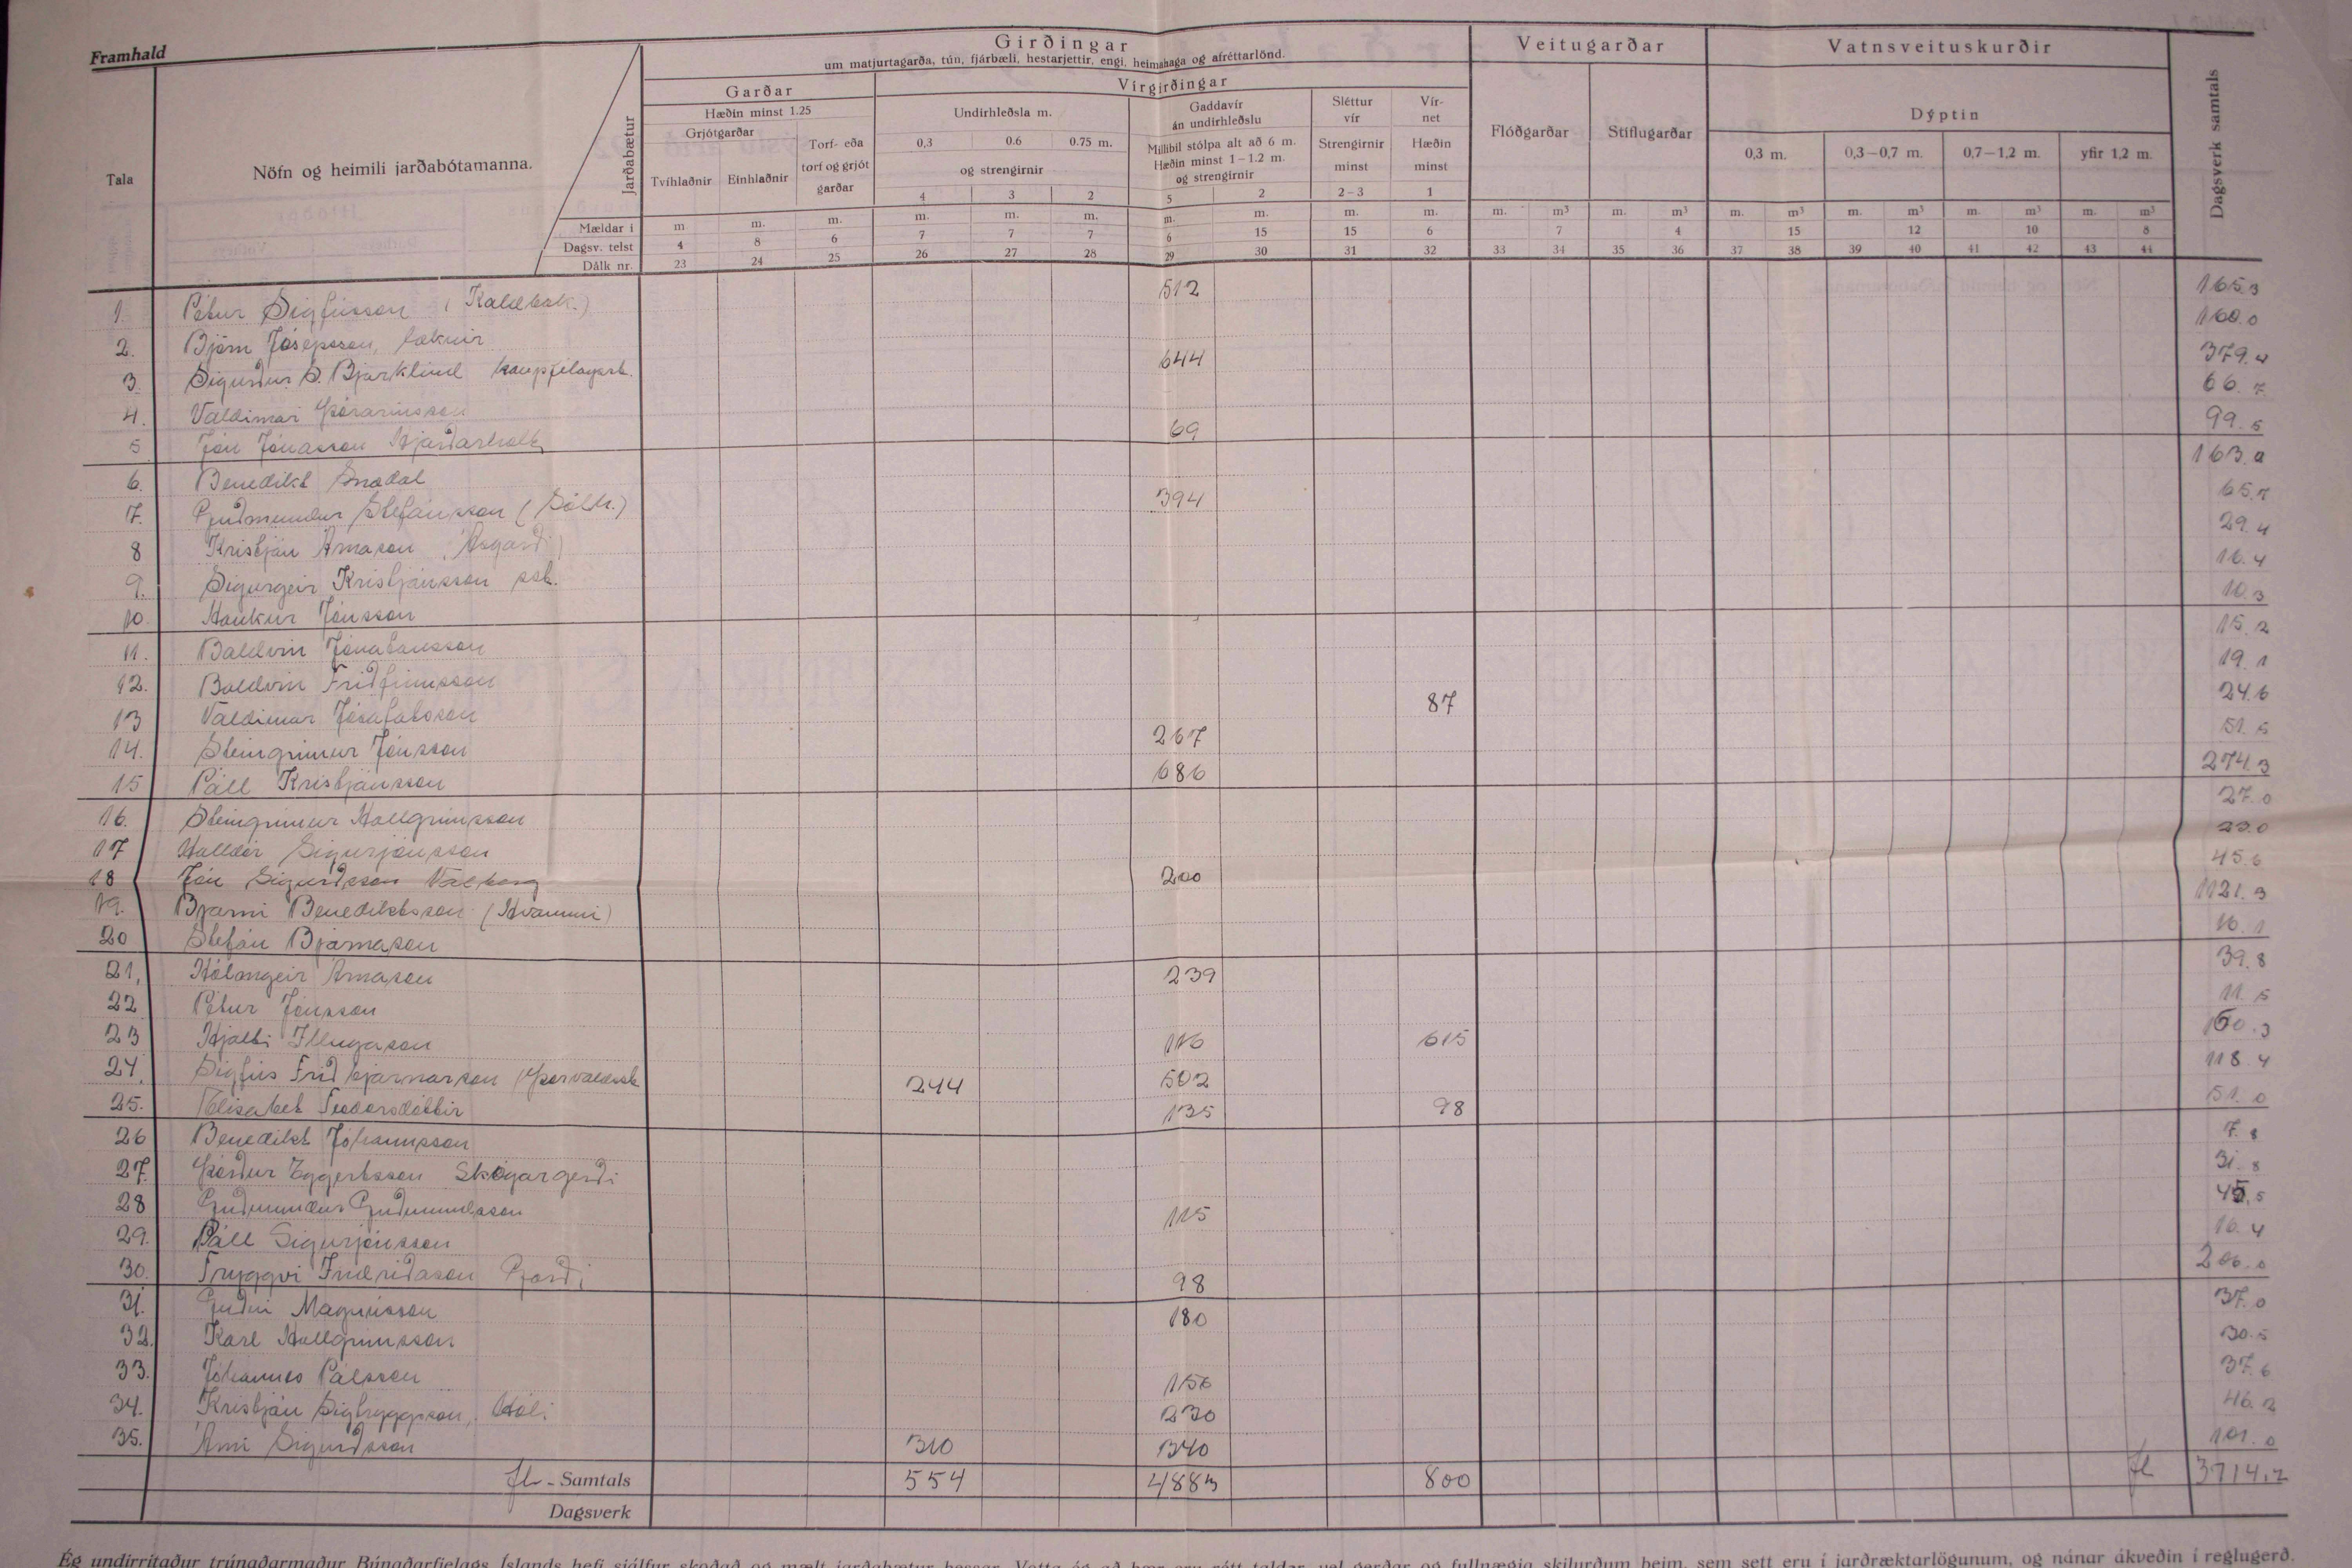 Framhald
Girðingar
um matjurtagarða, tún, fjárbæli, hestarjettir, engi, heimahaga og afréttarlönd.
Veitugarðar
Vatnsveituskurðir
Tala
Nöfn og heimili jarðabótamanna.
Jarðabætur
Garðar
Hæðin minst 1.25
Grjótgarðar
Tvíhlaðnir Einhlaðnir
Torf- eða torf og grjót garðar
Vírgirðingar
Undirhleðsla m.
0,3 0.6 0.75 m.
og strengirnir
4 3 2
Gaddavír án undirhleðslu
Millibil stólpa alt að 6 m.
Hæðin minst 1–1.2 m.
og strengirnir
5 2
Sléttur vír
Strengirnir minst
2–3
Vír-net
Hæðin minst
1
Flóðgarðar
Stíflugarðar
Dýptin
0,3 m. 0,3–0,7 m. 0,7–1,2 m. yfir 1,2 m.
Dagsverk samtals
Mældar i m m. m. m. m. m. m. m. m. m. m. m³ m. m³ m. m³ m. m³ m. m³ m. m³
Dagsv. telst 4 8 6 7 7 7 6 15 15 6 7 4 15 12 10 8
Dálk nr. 23 24 25 26 27 28 29 30 31 32 33 34 35 36 37 38 39 40 41 42 43 44
1. Pétur Sigfússon (Kaldbak.) 512 165.3
2. Björn Jósepsson, læknir 160.0
3. Sigurður S. Bjarklind kaupfélagsst. 644 379.
4. Valdimar Þórarinsson 66.7
5 Jón Jónasson Hjarðarholt 69 99.5
6. Benedikt Snædal 163.
7. Guðmundur Stefánsson (Sólh.) 394 65.7
8 Kristján Árnason (Ásgarði) 29.4
9. Sigurgeir Kristjánsson 16.4
10. Haukur Jónsson 10.3
11. Baldvin Jónatansson 15.2
12. Baldvin Friðfinnsson 19.1
13 Valdimar Jósafatsson 87 24.6
14. Steingrímur Jónsson 267 51.5
15 Páll Kristjánsson 686 274.3
16. Steingrímur Hallgrímsson 27.0
17 Halldór Sigurjónsson 23.0
18 Jón Sigurðsson Valborg 200 45.6
19. Bjarni Benediktsson (Hvammi) 1121.3
20 Stefán Bjarnason 16.1
21, Hólmgeir Árnason 239 39.8
22 Pétur Jónsson 11.5
23 Hjalti Illugason 116 615 160.3
24. Sigfús Friðbjarnarson 244 502 118.4
25. Elísabet Teodorsdóttir 135 98 51.0
26 Benedikt Jóhannsson 7.8
27. Þórður Eggertsson Skógargerði 31.8
28 Guðmundur Guðmundsson 115 45.5
29. Páll Sigurjónsson 16.4
30. Tryggvi Indriðason Gjorði 98 206.0
31. Guðni Magnússon 180 37.0
32. Karl Hallgrímsson 30.5
33. Jóhannes Pálsson 156 37.6
34. Kristján Sigtryggsson, Hóli 230 46.2
35. Árni Sigurðsson 310 340 101.0
fl - Samtals 554 4883 800 fl 3714.2
Dagsverk
Ég undirritaður trúnaðarmaður Búnaðarfjelags Íslands hefi sjálfur skoðað og mælt jarðabætur þessar. Votta ég að þær eru rétt taldar, vel gerðar og fullnægja skilyrðum þeim, sem sett eru í jarðræktarlögunum, og nánar ákveðin í reglugerð.